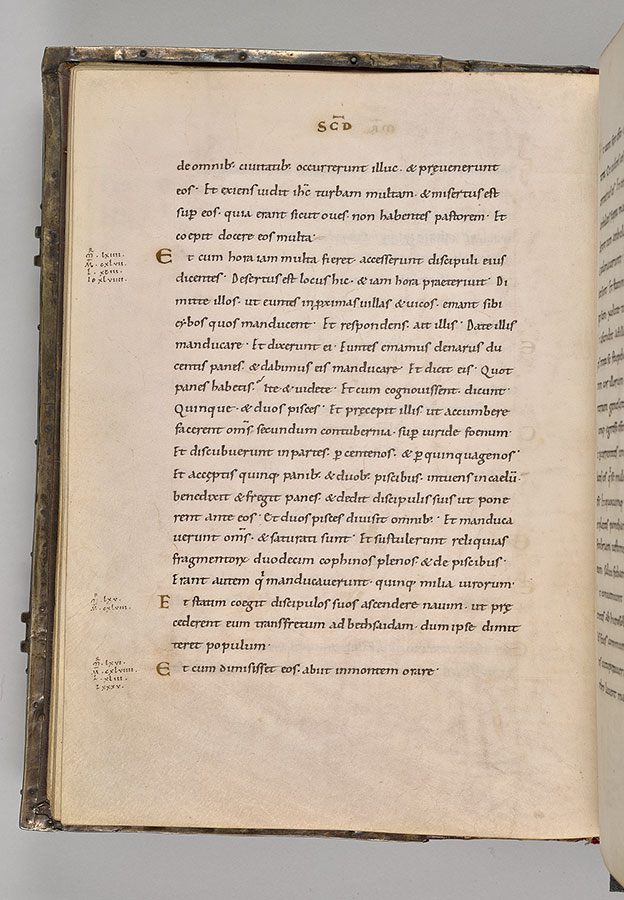 SCD
de omnib; ciuitatib; occurrerunt illuc · & pręuenerunt
eos · Et exiens uidit ihc turbam multam · & misertus est
sup eos · quia erant sicut oues non habentes pastorem · Et
coepit docere eos multa ·
m̄ · lxiiii ·
Et cum hora iam multa fieret · accesserunt discipuli eius
m̄ · cxlvii ·
l · xciii ·
dicentes · Desertus est locus hic · & iam hora praeteriuit · Di
io xlviiii ·
mitte illos · ut euntes in proximas uillas & uicos · emant sibi
cybos quos manducent · Et respondens · ait illis · Date illis
manducare · Et dixerunt ei · Euntes emamus denarus du
centis panes · & dabimus eis manducare · Et dicit eis · Quot
panes habetis · Ite & uidete · Et cum cognouissent · dicunt ·
Quinque · & duos pisces · Et pręcepit illis ut accumbere
facerent om̄s secundum contubernia · sup uiride foenum ·
Et discubuerunt in partes · p centenos · & p quinquagenos ·
Et accęptis quinq; panib; & duob; piscibus · intuens in caelū ·
benedixit & fregit panes · & dedit discipulis suis ut pone
rent ante eos · Et duos pisces diuisit omnib; · Et manduca
uerunt om̄s · & saturati sunt · Et sustulerunt reliquias
fragmentorx duodecim cophinos plenos & de piscibus ·
Erant autem qi manducauerunt · quinq; milia uirorum ·
m̄ · lxv ·
Et statim coegit discipulos suos ascendere nauim · ut pre
m̄ · cxlviii ·
cederent eum transfretum ad bethsaidam · dum ipse dimit
teret populum ·
m̄ · lxvi ·
Et cum dimisisset eos · abiit in montem orare ·
m̄ · cxlviiii ·
l · xliii ·
i xxxv ·